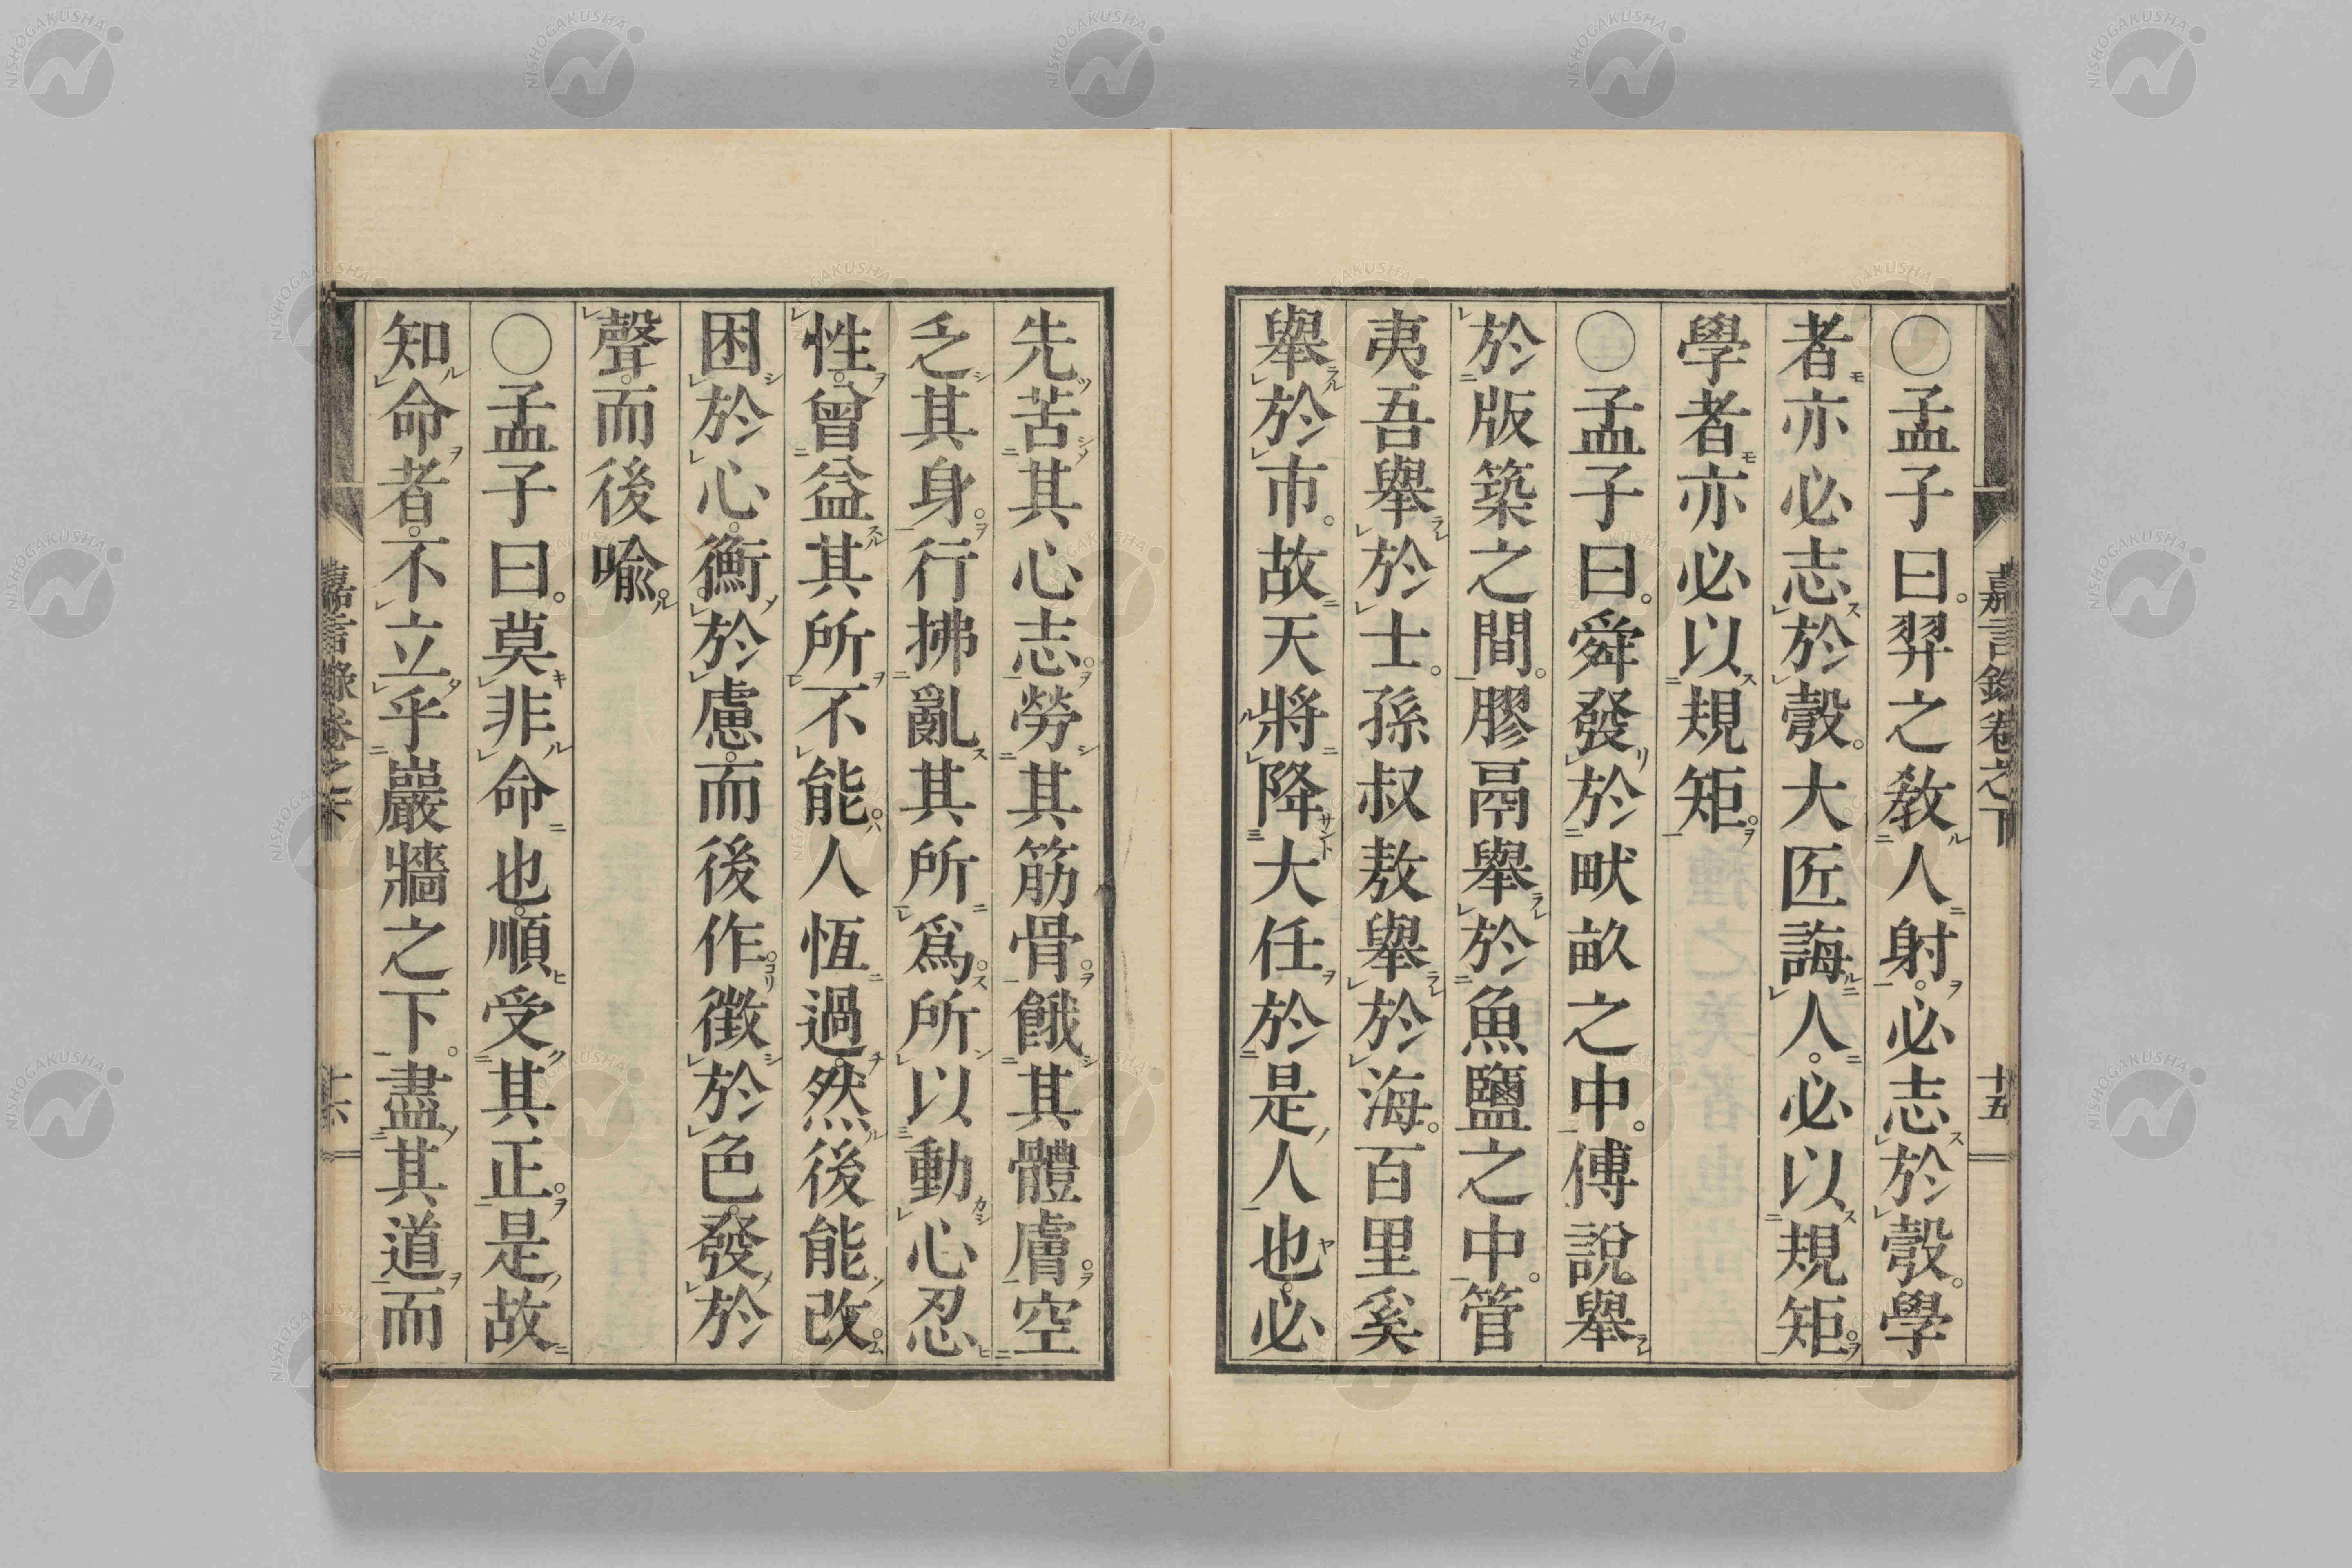 嘉言錄卷之下
十五
〇孟子曰。羿之教人射。必志於彀。學
者亦必志於彀。大匠誨人。必以規矩
學者亦必以規矩
〇孟子曰。舜發於畎畝之中。傅說舉
於版築之間。膠鬲舉於魚鹽之中。管
夷吾舉於士。孫叔敖舉於海。百里奚
舉於市。故天將降大任於是人也。必
先苦其心志。勞其筋骨。餓其體膚。空
乏其身。行拂亂其所爲。所以動心忍
性。曾益其所不能。人恆過。然後能改。
困於心。衡於慮。而後作。徵於色。發於
聲。而後喩。
〇孟子曰。莫非命也。順受其正。是故
知命者。不立乎巖牆之下。盡其道而
嘉言錄卷之下
十六
NISHOGAKUSHA